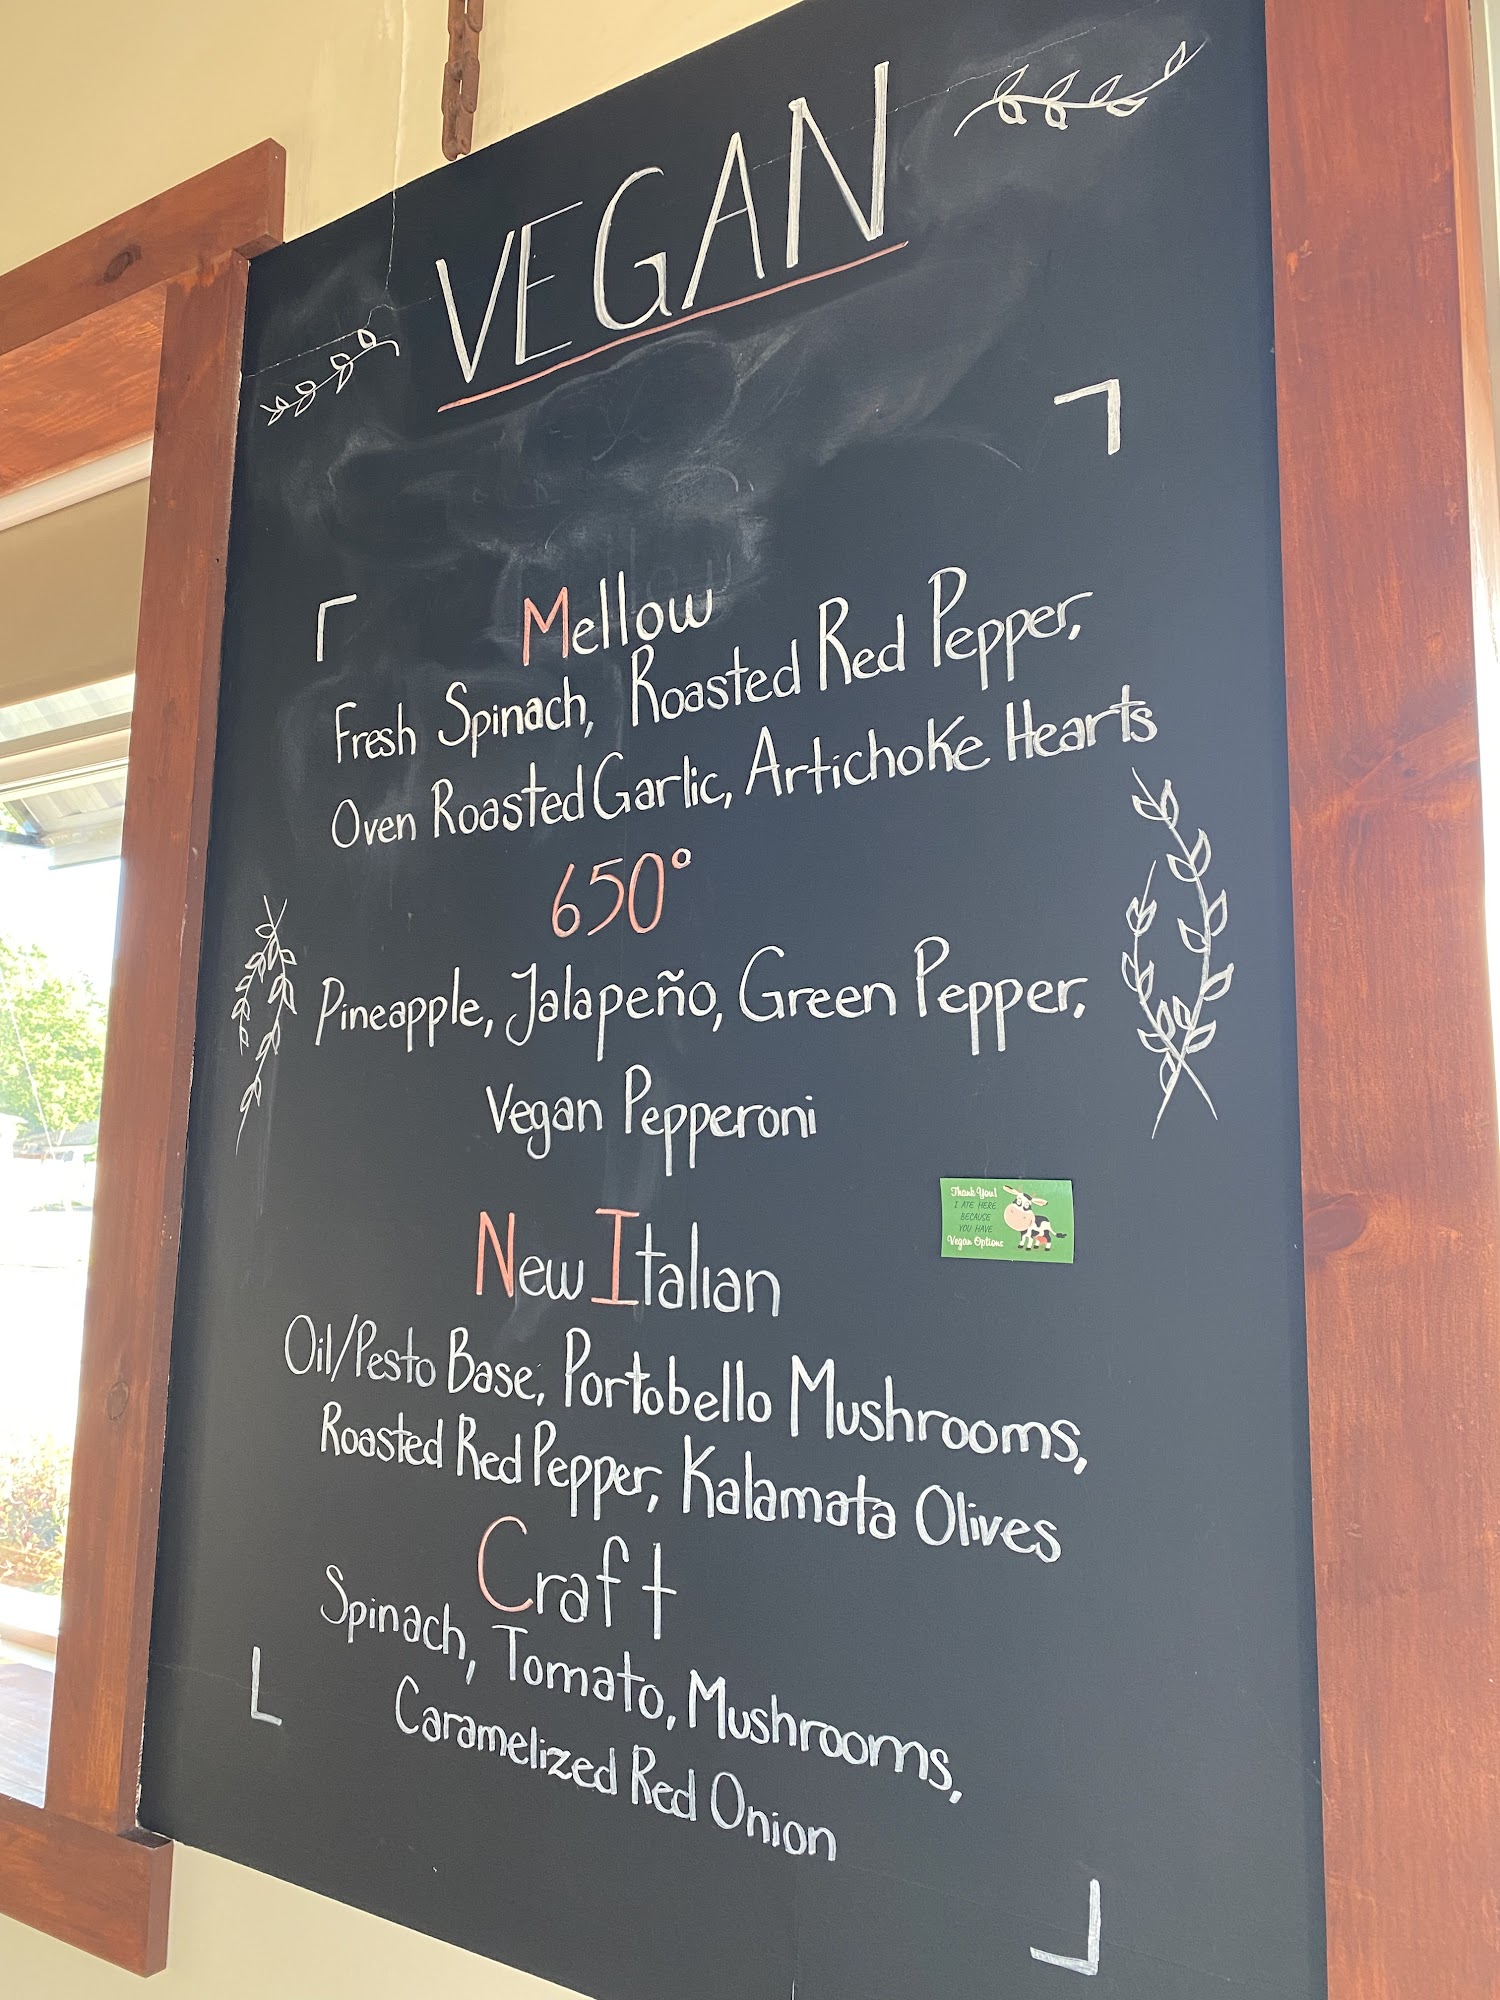 VEGAN
Mellow
Fresh Spinach, Roasted Red Pepper,
Oven Roasted Garlic, Artichoke Hearts
650°
Pineapple, Jalapeño, Green Pepper,
Vegan Pepperoni
Thank You!
I ATE HERE
BECAUSE
YOU HAVE
Vegan Options
New Italian
Oil/Pesto Base, Portobello Mushrooms,
Roasted Red Pepper, Kalamata Olives
Craft
Spinach, Tomato, Mushrooms,
Caramelized Red Onion